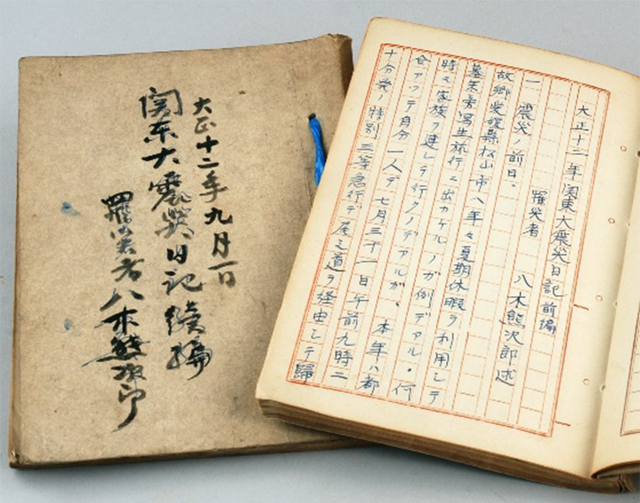 大正十二年九月一日
関東大震災日記續編
罹災者八木熊次郎
大正十二年関東大震災日記 前編
罹災者 八木熊次郎述
一 震災ノ前日。
故郷愛媛縣松山市ヘ年々夏期休暇ヲ利用シテ
墓参旁写生旅行ニ出カケルノガ例デアル・何
時モ家族ヲ連レテ行クノデアルガ、本年ハ都
合アッテ自分一人デ七月三十一日午前九時
十分発ノ特別三等急行デ尾ノ道ヲ経由シテ帰